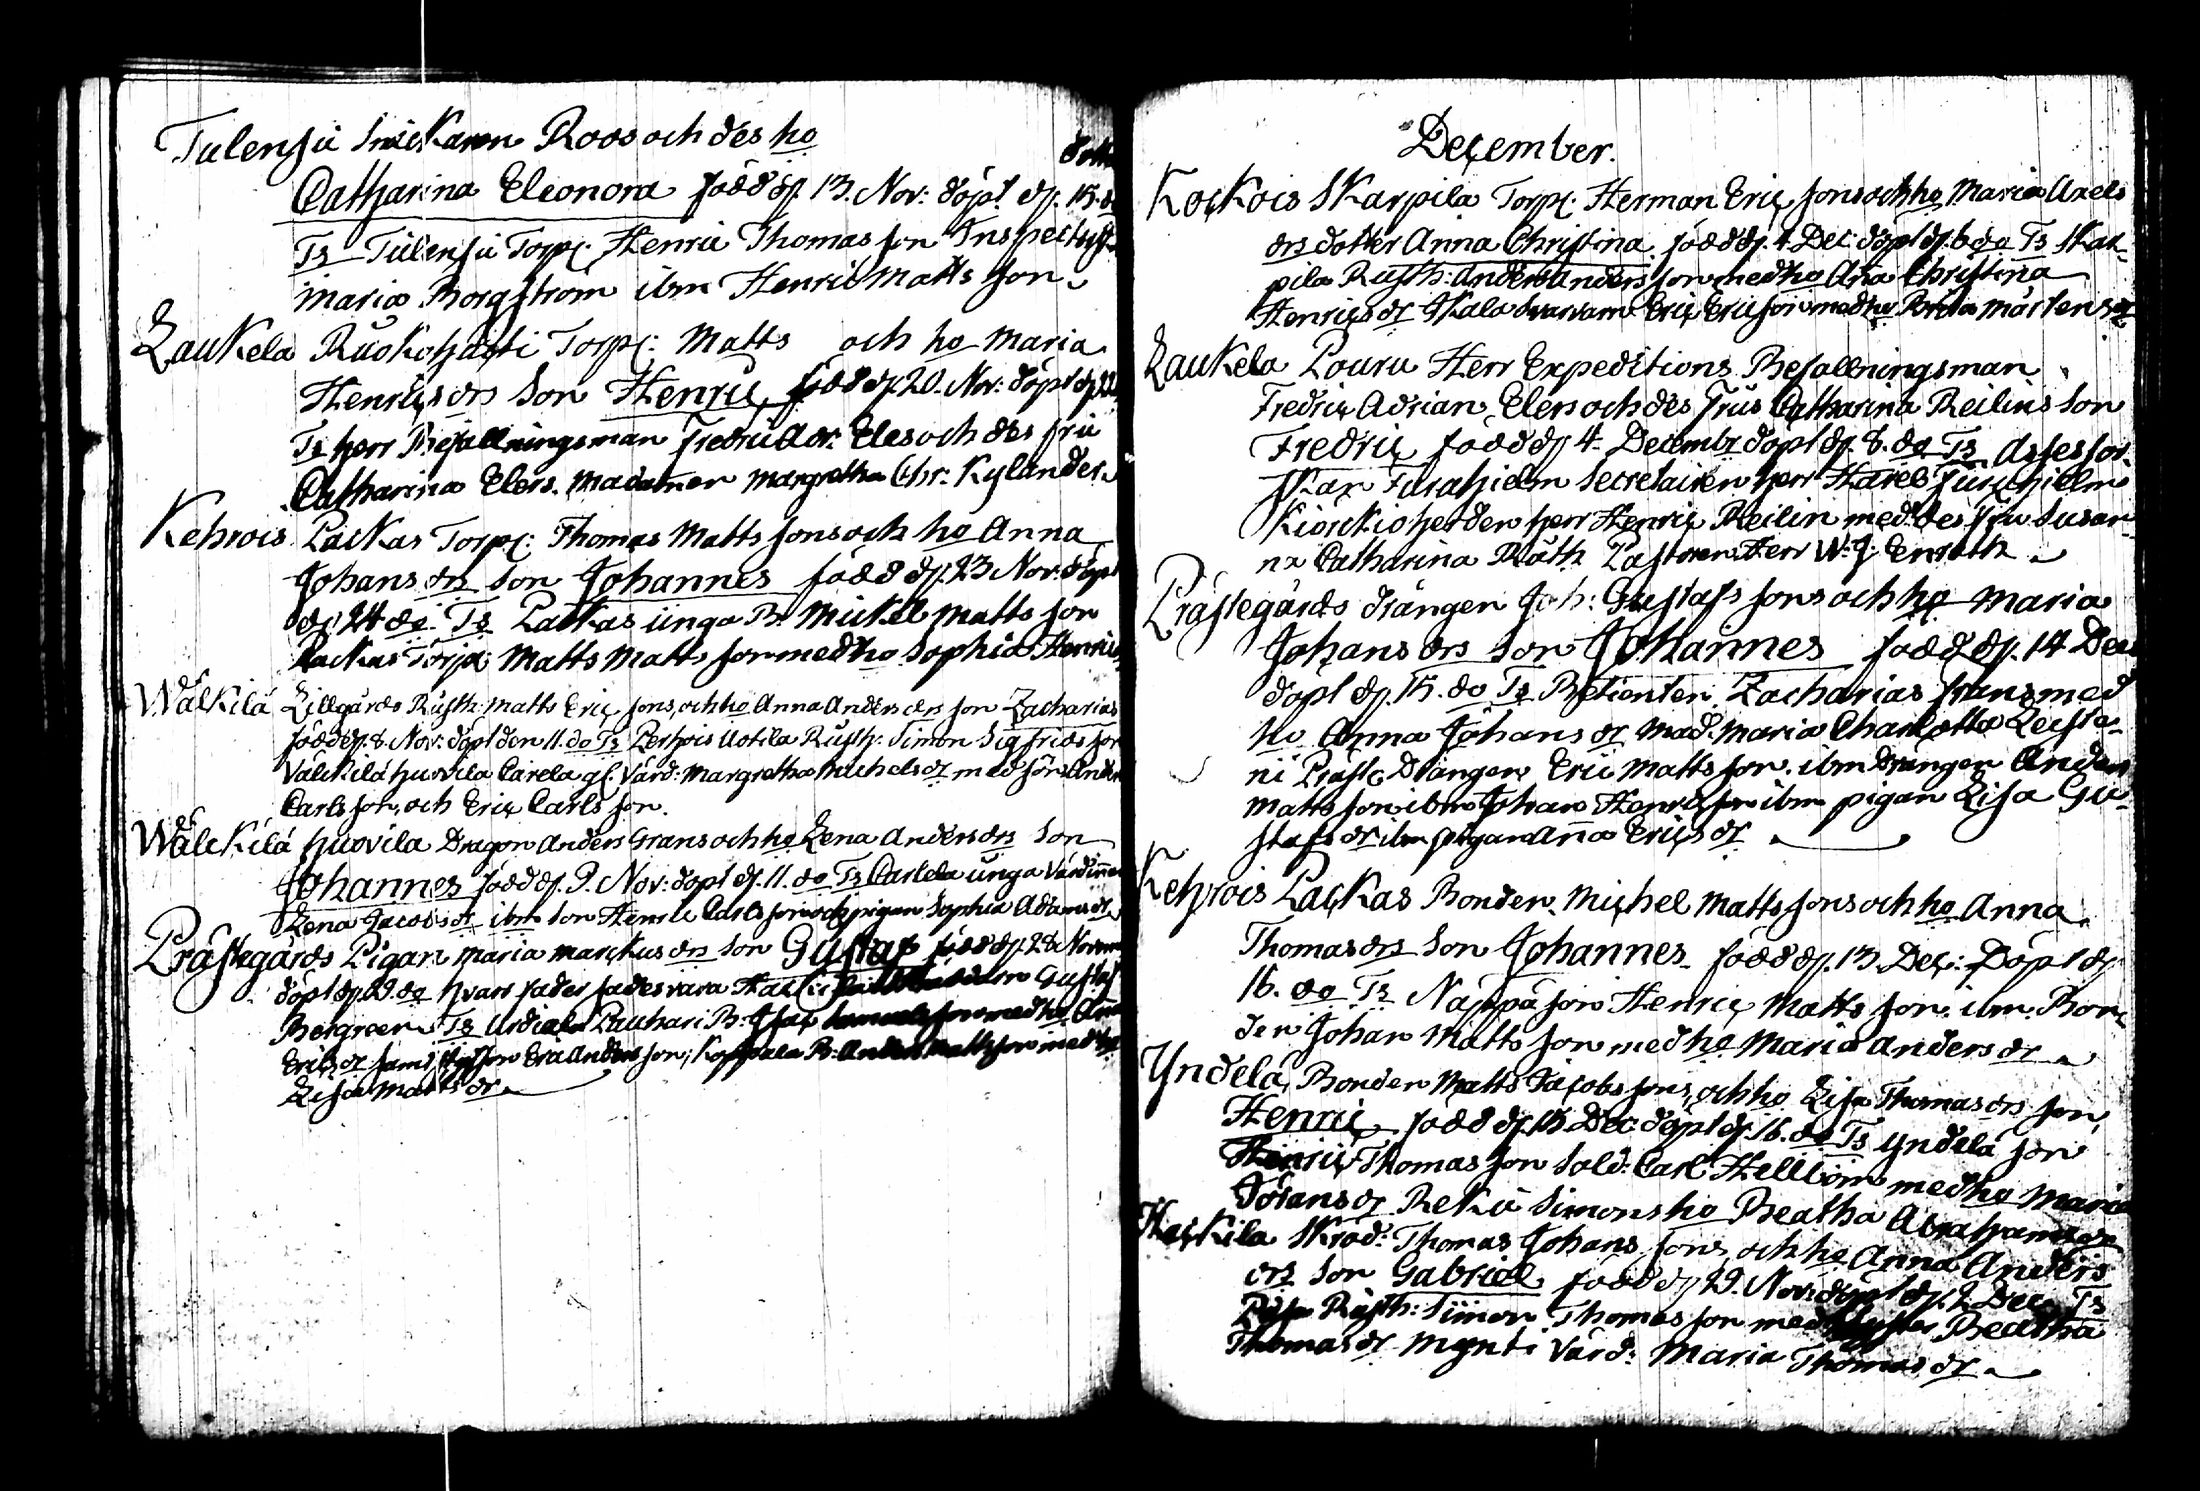 Tulensu Snickaren Roos och des ho
Catharina Eleonora född d. 13. Nov: döpt d. 15.
Ts Tulensu Torp. Henric Thomas son Inspect
Maria Borgström ibm Henric Matts son
Laukela Ruokojasti Torp: Matts och ho Maria
Henrics drs Son Henric född d. 20. Nov: döpt d.
Ts herr Befallningsman Fredric Adr: Elers och des fru
Catharina Elers. Madamen Margretha Chr. Kylander
Kehrois Lackas Torp: Thomas Matts sons och ho Anna
Johans drs son Johannes född d. 23 Nov: döpt
d. 24 do Ts Lackas unga B. Mickel Matts son
Lackas Torp: Matts Matts son med ho Sophia Henrics
Wälkilä Lillgårds Rusth: Matts Eric sons, och ho Anna Anders drs son Zacharias
född d. 8 Nov: döpt den 11. do Ts Perhois Uotila Rusth: Simon Sigfrids son
Välckilä Huovila Carela gl. Värd: Margretha Michels dr med son Anders
Carls son, och Eric Carls son.
Wälckilä Huovila Dragon Anders Grans och ho Lena Anders drs Son
Johannes född d. 9. Nov: döpt d. 11. do Ts Carlela unga Värdinnan
Lena Jacobs dr ibm son Henric Carls son och pigan Sophia Adams dr
Prästegårds Pigan Maria Marckus drs son Gustaf född d. 28 Novem
döpt d. 29. do hvars fader sades vara Gustaf
Bergreen Ts Urdiala Lauhari B: med ho Anna
Erics dr samt son Eric Anders son, Koppala B: Anders Matts son med ho
Lisa Matts dr
December.
Kockois Skarpila Torp: Herman Eric sons och ho Maria Axels
drs dotter Anna Christina född d. 4. Dec: döpt d. 6 do Ts Skar-
pila Rusth: Anders Anders son med ho Ana Christina
Henrics dr Eric Eric son med ho Mårtens dr
Laukela Pouru Herr Expeditions Befallningsman
Fredric Adrian Elers och des Frus Catharina Reilins Son
Fredric född d. 4. Decembr döpt d. 8. do Ts Assessor
Secretairen herr
Kiorckioherden herr Henric Reilin med des fru Susan-
na Catharina Råth Pastoren Herr W: J: Enroth
Prästegårds drängen Joh: Gustafs sons och ho Maria
Johans drs Son Johannes född d. 14 Dec
döpt d. 15. do Ts Betienten Zacharias frans med
ho Anna Johans dr Mad: Maria Charlotta
Präste Drängen Eric Matts son. ibm Drängen Anders
Matts son ibm Johan Henric son ibm pigan Lisa Gu-
stafs dr ibm pigan Anna Erics dr
Kehrois Lackas Bonden Michel Matts sons och ho Anna
Thomas drs Son Johannes född d. 13. Dec: Döpt d.
16. do Ts Näppä son Henric Matts son. ibm. Bon-
den Johan Matts son med ho Maria Anders dr
Yndelä Bonden Matts Jacobs sons, och ho Lisa Thomas drs son
Henric född d. 15 Dec: döpt d. 16. do Ts Yndelä son
Henric Thomas son Sold: Carl Hellbom med ho Maria
Görans dr Simons ho Beatha Abrahams dr
Heickila Skräd: Thomas Johans sons och ho Anna Anders
drs Son Gabriel född d. 29. Nov: döpt d. 2 Dec. Ts
Rusth: Simon Thomas son med Beatha
Thomas dr Mynti Värd: Maria Thomas dr